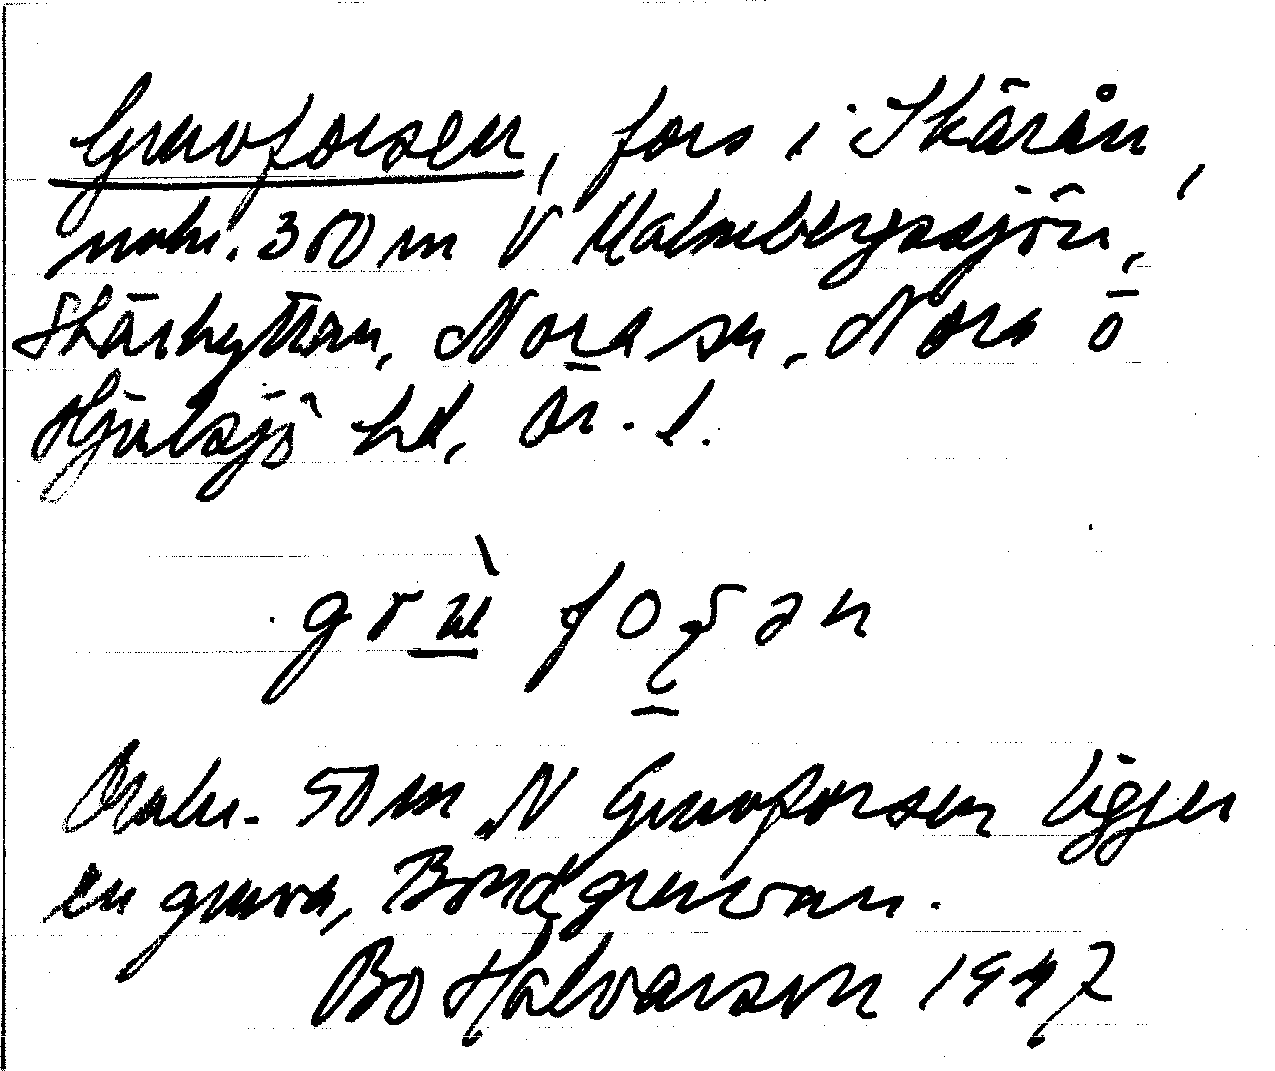 Gruvforsen, fors i Skärån,
omkr. 300 m V Malmbergssjön,
Skärhyttan, Nora sn, Nora o
Hjulsjö hd, Ör. l.
Omkr. 50 m N Gruvforsen ligger
en gruva, Bondgruvan.
Bo Halvarson 1947